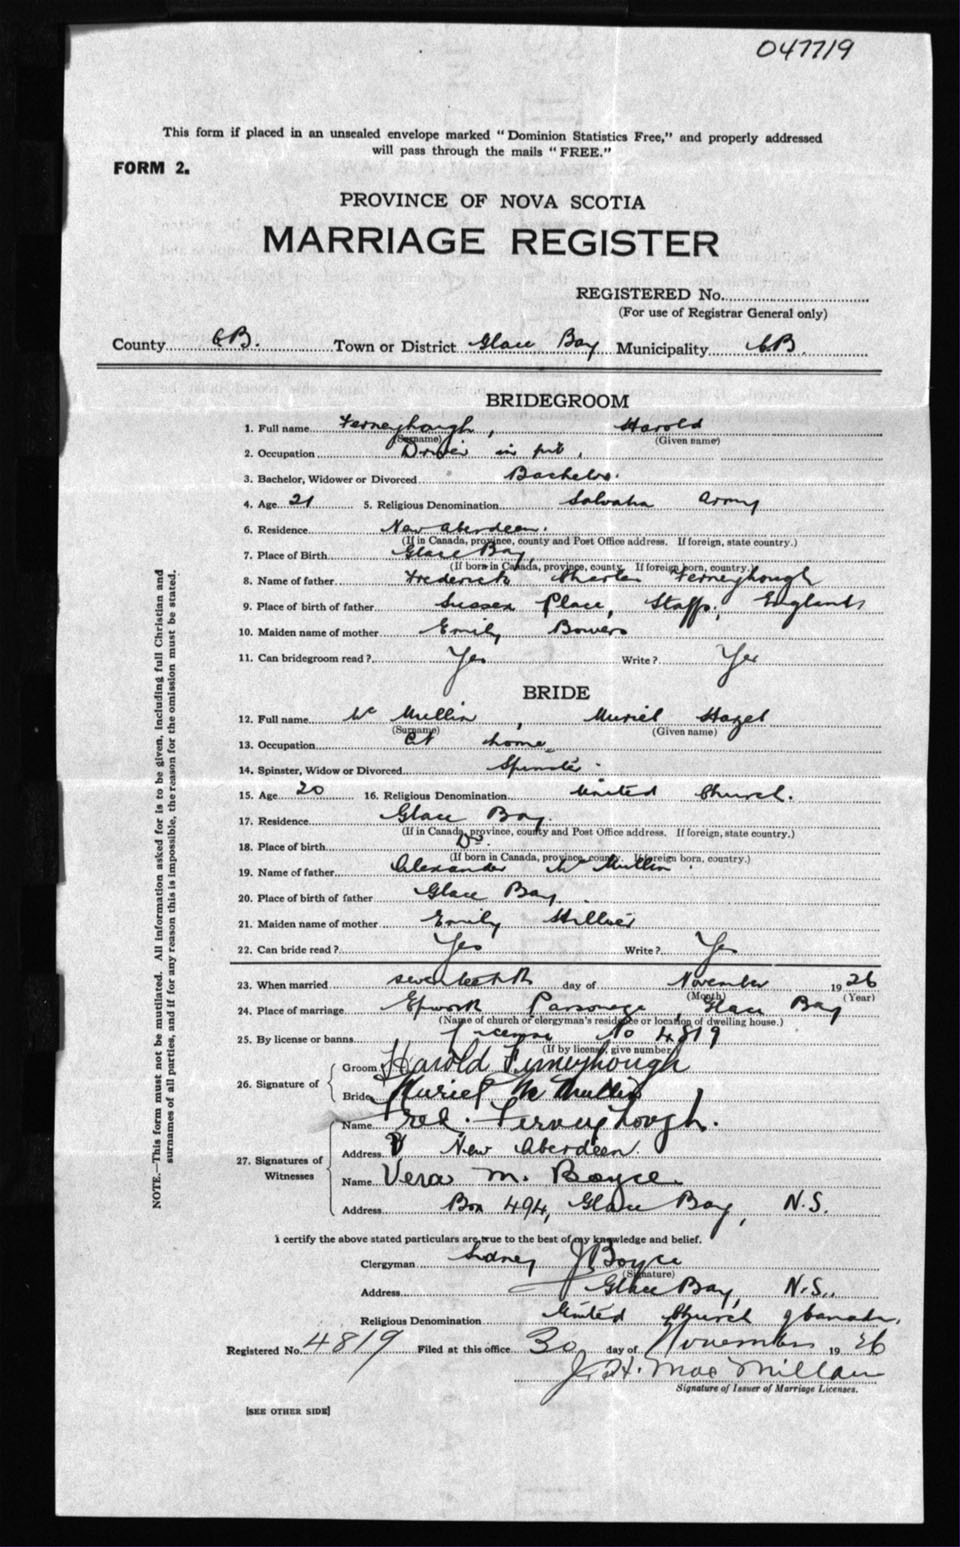 047719
This form if placed in an unsealed envelope marked "Dominion Statistics Free," and properly addressed
will pass through the mails "FREE."
FORM 2.
PROVINCE OF NOVA SCOTIA
MARRIAGE REGISTER
REGISTERED No.
(For use of Registrar General only)
County CB. Town or District Glace Bay Municipality CB.
BRIDEGROOM
1. Full name Ferneyhough, Harold
(Surname) (Given name)
2. Occupation Driver in pit,
3. Bachelor, Widower or Divorced Bachelor.
4. Age 21 5. Religious Denomination Salvation Army
6. Residence New Aberdeen.
(If in Canada, province, county and Post Office address. If foreign, state country.)
7. Place of Birth Glace Bay
(If born in Canada, province, county. If foreign born, country.)
8. Name of father Frederick Charles Ferneyhough
9. Place of birth of father Sussex Place, Staffs, England
10. Maiden name of mother Emily Bowers
11. Can bridegroom read? Yes Write? Yes
BRIDE
12. Full name Mc Mullin, Muriel Hazel
(Surname) (Given name)
13. Occupation At home
14. Spinster, Widow or Divorced Spinster
15. Age 20 16. Religious Denomination United Church.
17. Residence Glace Bay.
(If in Canada, province, county and Post Office address. If foreign, state country.)
18. Place of birth Do.
(If born in Canada, province, county. If foreign born, country.)
19. Name of father Alexander Mc Mullin.
20. Place of birth of father Glace Bay.
21. Maiden name of mother Emily Hillier
22. Can bride read? Yes Write? Yes
23. When married seventeenth day of November 1926
(Month) (Year)
24. Place of marriage Epworth Parsonage, Glace Bay
(Name of church or clergyman's residence or location of dwelling house.)
25. By license or banns License No 4819
(If by license, give number)
26. Signature of
Groom Harold Ferneyhough
Bride Muriel Mc Mullin
27. Signatures of Witnesses
Name Fred. Ferneyhough.
Address New Aberdeen.
Name Vera M. Boyce.
Address Box 494, Glace Bay, N.S.
I certify the above stated particulars are true to the best of my knowledge and belief.
Clergyman Sidney J Boyce
(Signature)
Address Glace Bay, N.S.,
Religious Denomination United Church of Canada,
Registered No. 4819 Filed at this office 30 day of November 1926
Mac Millan
Signature of Issuer of Marriage Licenses.
[SEE OTHER SIDE]
NOTE.—This form must not be mutilated. All information asked for is to be given, including full Christian and
surnames of all parties, and if for any reason this is impossible, the reason for the omission must be stated.